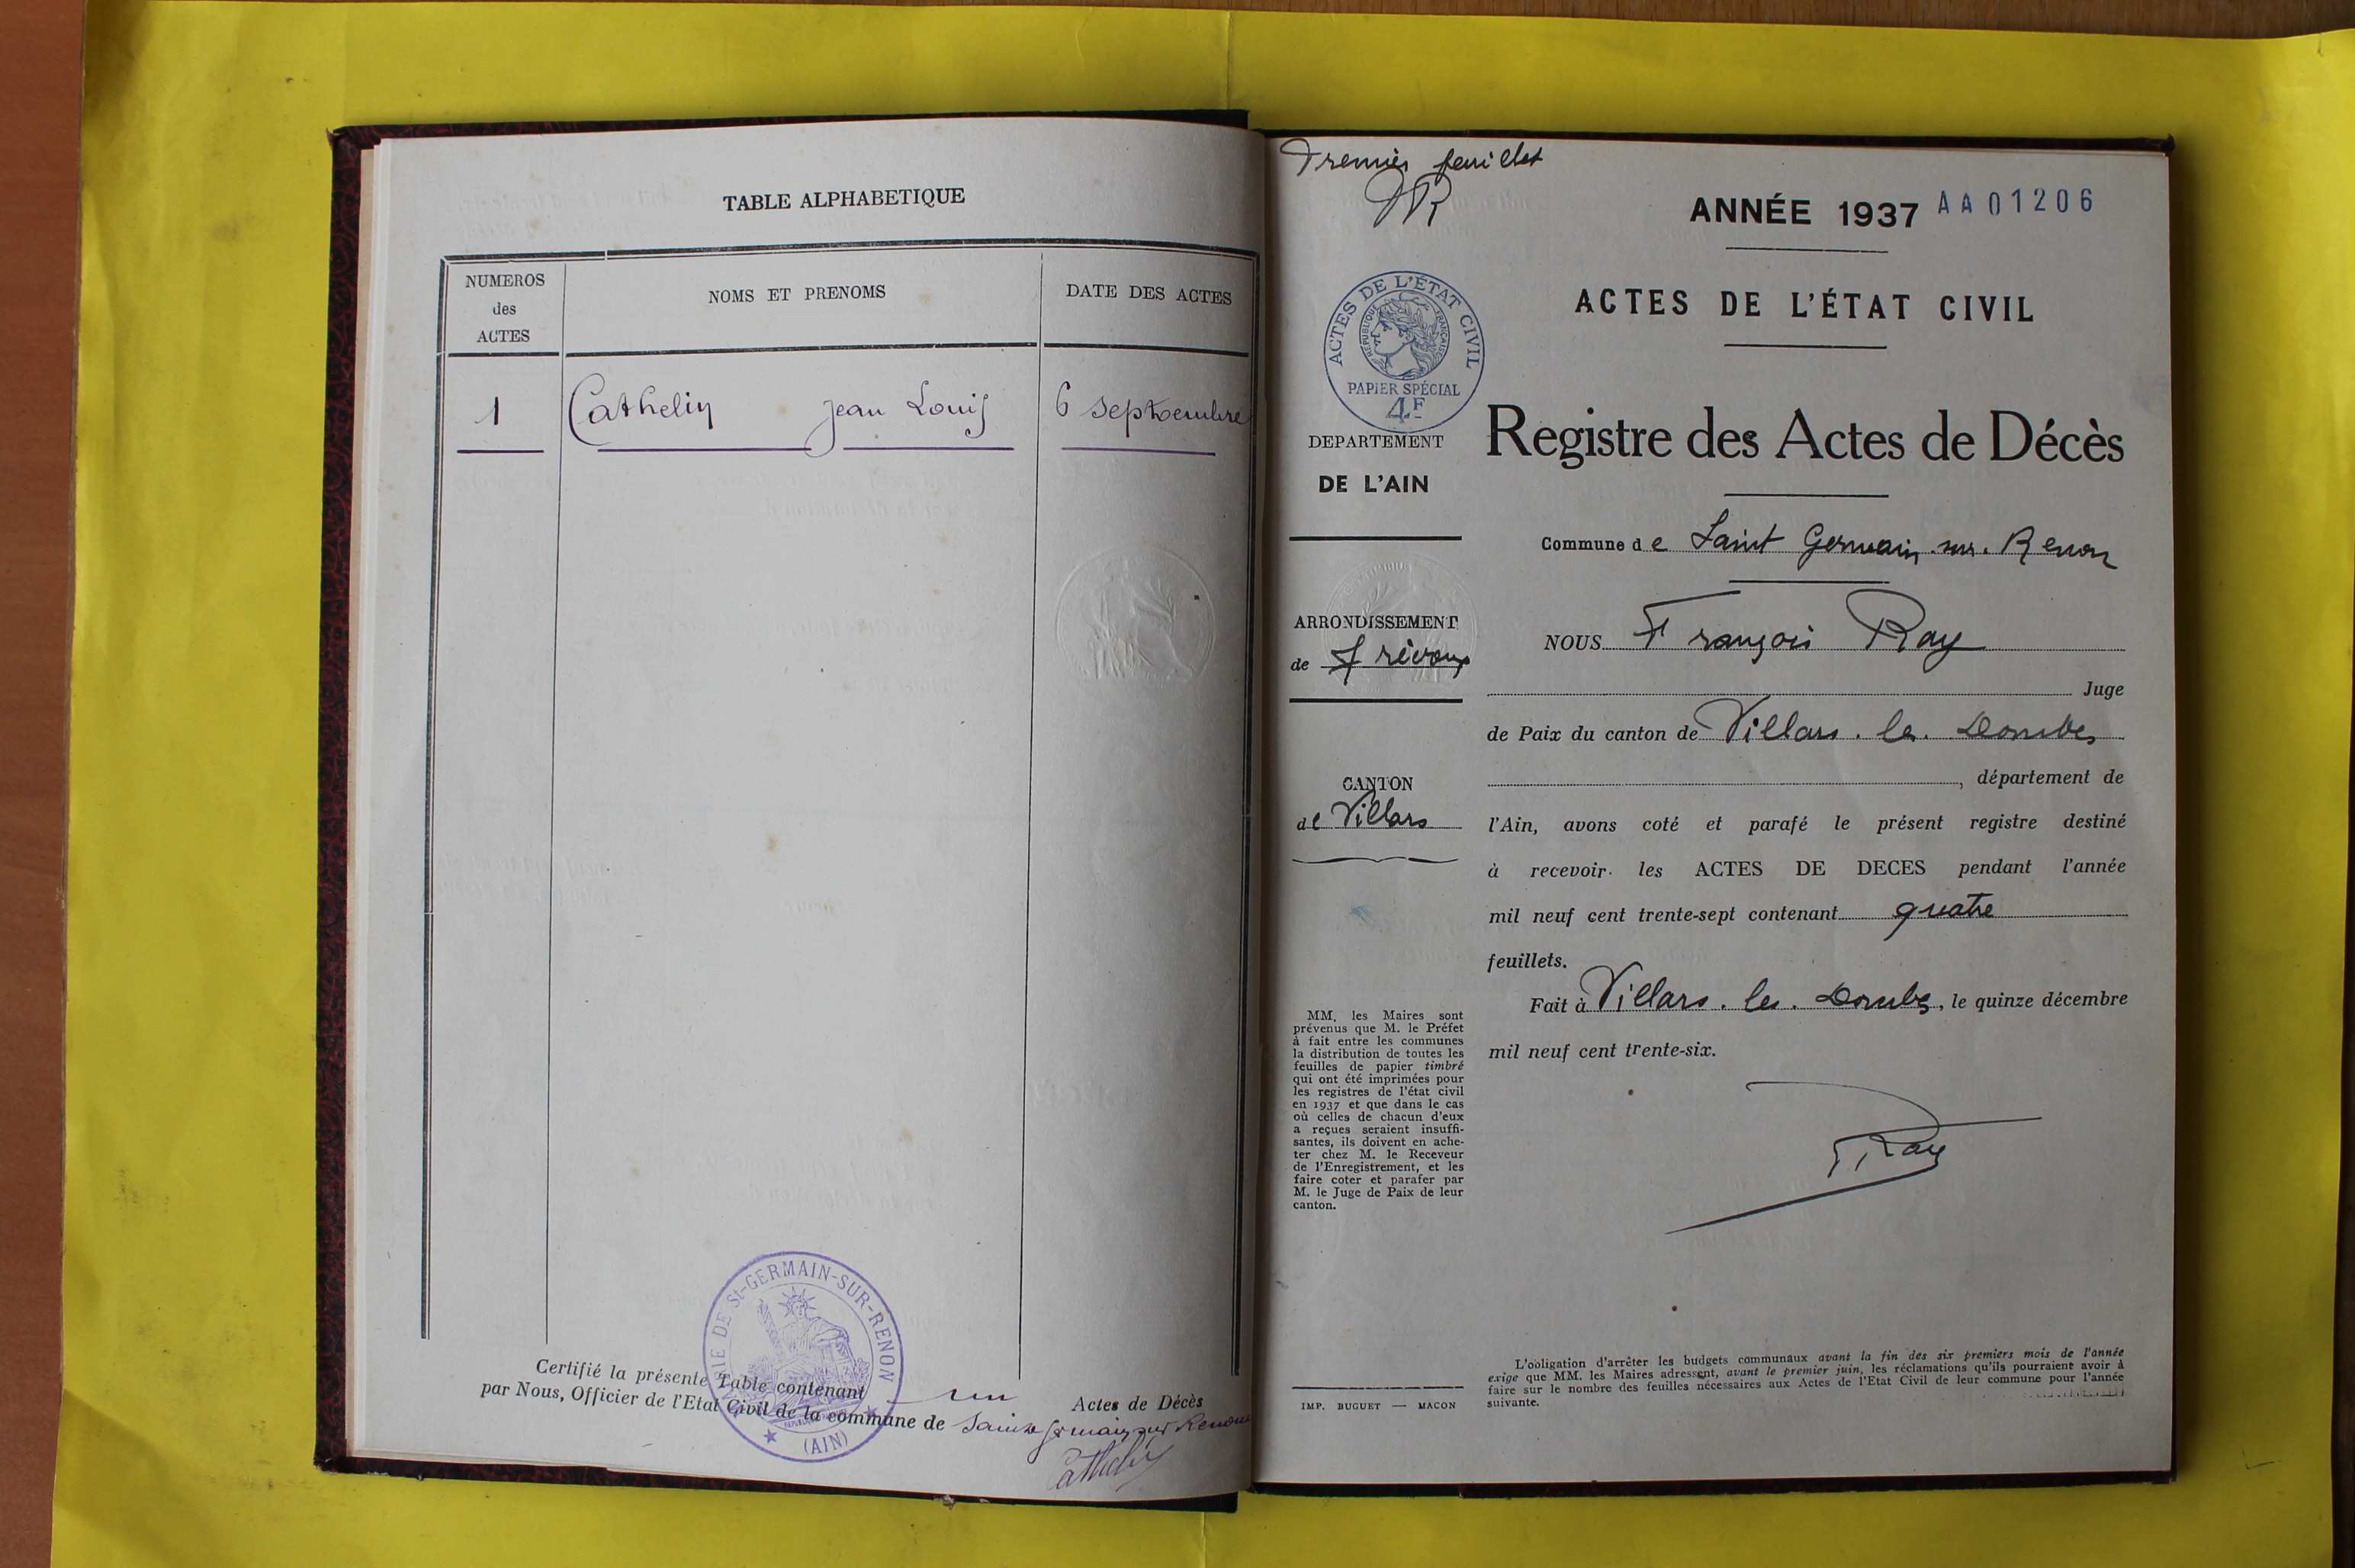 TABLE ALPHABETIQUE
NUMEROS
des
ACTES
NOMS ET PRENOMS
DATE DES ACTES
1 Cathelin Jean Louis 6 septembre
MAIRIE DE St-GERMAIN-SUR-RENON
(AIN)
Certifié la présente Table contenant un Actes de Décès
par Nous, Officier de l'Etat Civil de la commune de Saint Germain sur Renon
Cathelin
Premier feuillet
ANNÉE 1937 AA01206
ACTES DE L'ÉTAT CIVIL
ACTES DE L'ÉTAT CIVIL
RÉPUBLIQUE FRANÇAISE
PAPIER SPÉCIAL
4F
DEPARTEMENT
DE L'AIN
ARRONDISSEMENT
de Trévoux
CANTON
de Villars
MM. les Maires sont
prévenus que M. le Préfet
à fait entre les communes
la distribution de toutes les
feuilles de papier timbré
qui ont été imprimées pour
les registres de l'état civil
en 1937 et que dans le cas
où celles de chacun d'eux
a reçues seraient insuffi-
santes, ils doivent en ache-
ter chez M. le Receveur
de l'Enregistrement, et les
faire coter et parafer par
M. le Juge de Paix de leur
canton.
IMP. BUGUET — MACON
Registre des Actes de Décès
Commune de Saint Germain sur Renon
NOUS François Ray
Juge
de Paix du canton de Villars les Dombes
, département de
l'Ain, avons coté et parafé le présent registre destiné
à recevoir les ACTES DE DECES pendant l'année
mil neuf cent trente-sept contenant quatre
feuillets.
Fait à Villars les Dombes, le quinze décembre
mil neuf cent trente-six.
Ray
L'obligation d'arrêter les budgets communaux avant la fin des six premiers mois de l'année
exige que MM. les Maires adressent, avant le premier juin, les réclamations qu'ils pourraient avoir à
faire sur le nombre des feuilles nécessaires aux Actes de l'Etat Civil de leur commune pour l'année
suivante.